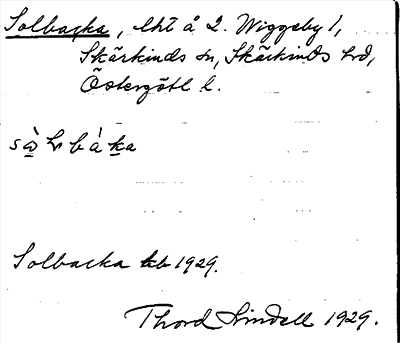 Solbacka, lht å 2. Wiggeby 1,
Skärkinds sn, Skärkinds hd,
Östergötl l.
Solbacka kb 1929.
Thord Lindell 1929.